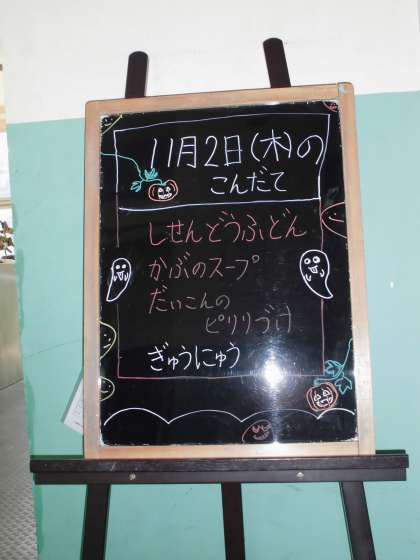 11月2日(木)の
こんだて
しせんどうふどん
かぶのスープ
だいこんの
ピリリづけ
ぎゅうにゅう